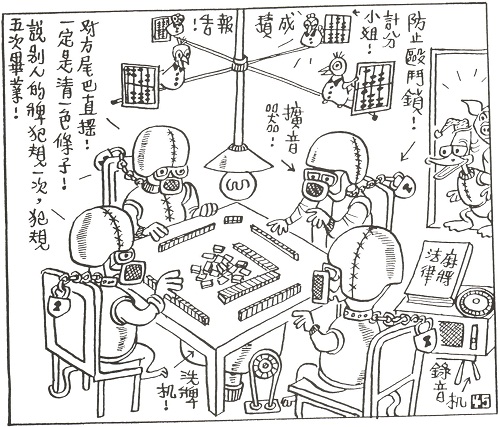 防止毆鬥鎖!
計分
小姐!
成績
報告!
擴音
器!
对方尾巴直搖!
一定是清一色條子!
說別人的牌犯規一次,犯規
五次畢業!
麻將
法律
洗牌
机!
錄音
机!
45